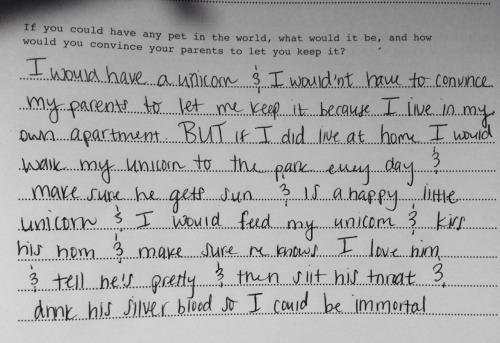 If you could have any pet in the world, what would it be, and how
would you convince your parents to let you keep it?
I would have a unicorn & I would'nt have to convince
my parents to let me keep it because I live in my
own apartment. BUT if I did live at home I would
walk my unicorn to the park every day &
make sure he gets sun & is a happy little
unicorn & I would feed my unicorn & kiss
his horn & make sure he knows I love him
& tell he's pretty & then slit his throat &
drink his silver blood so I could be immortal